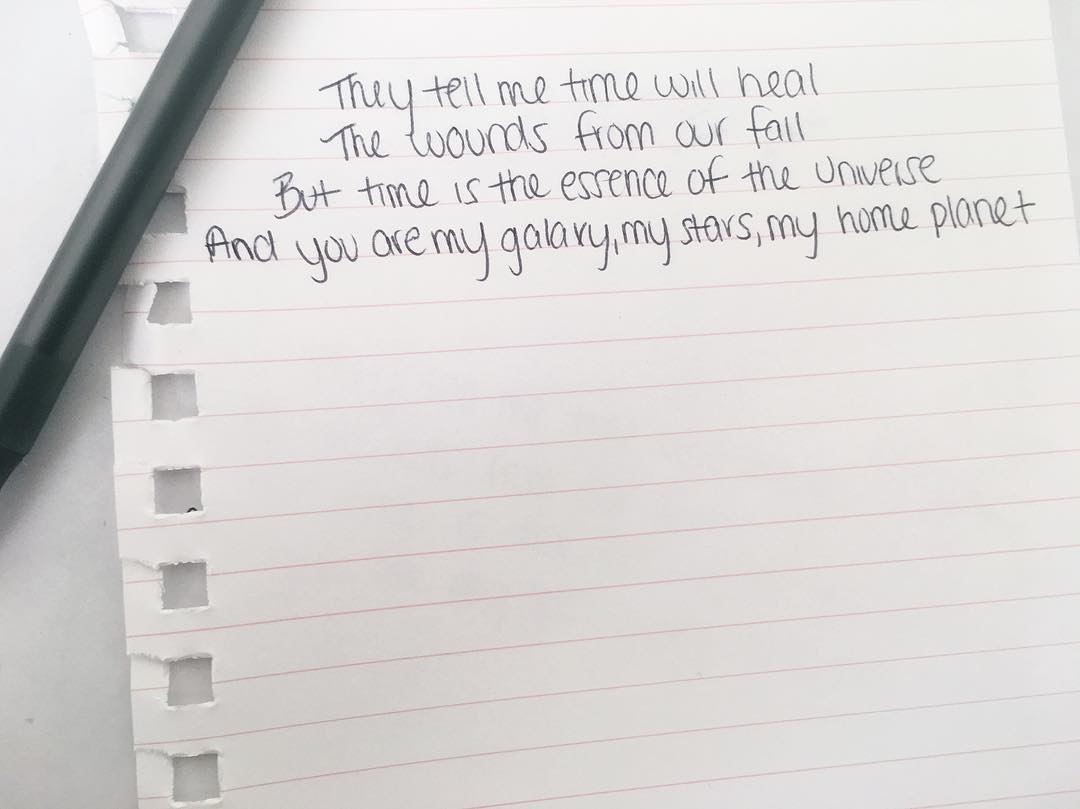 They tell me time will heal
The wounds from our fall
But time is the essence of the universe
And you are my galaxy, my stars, my home planet